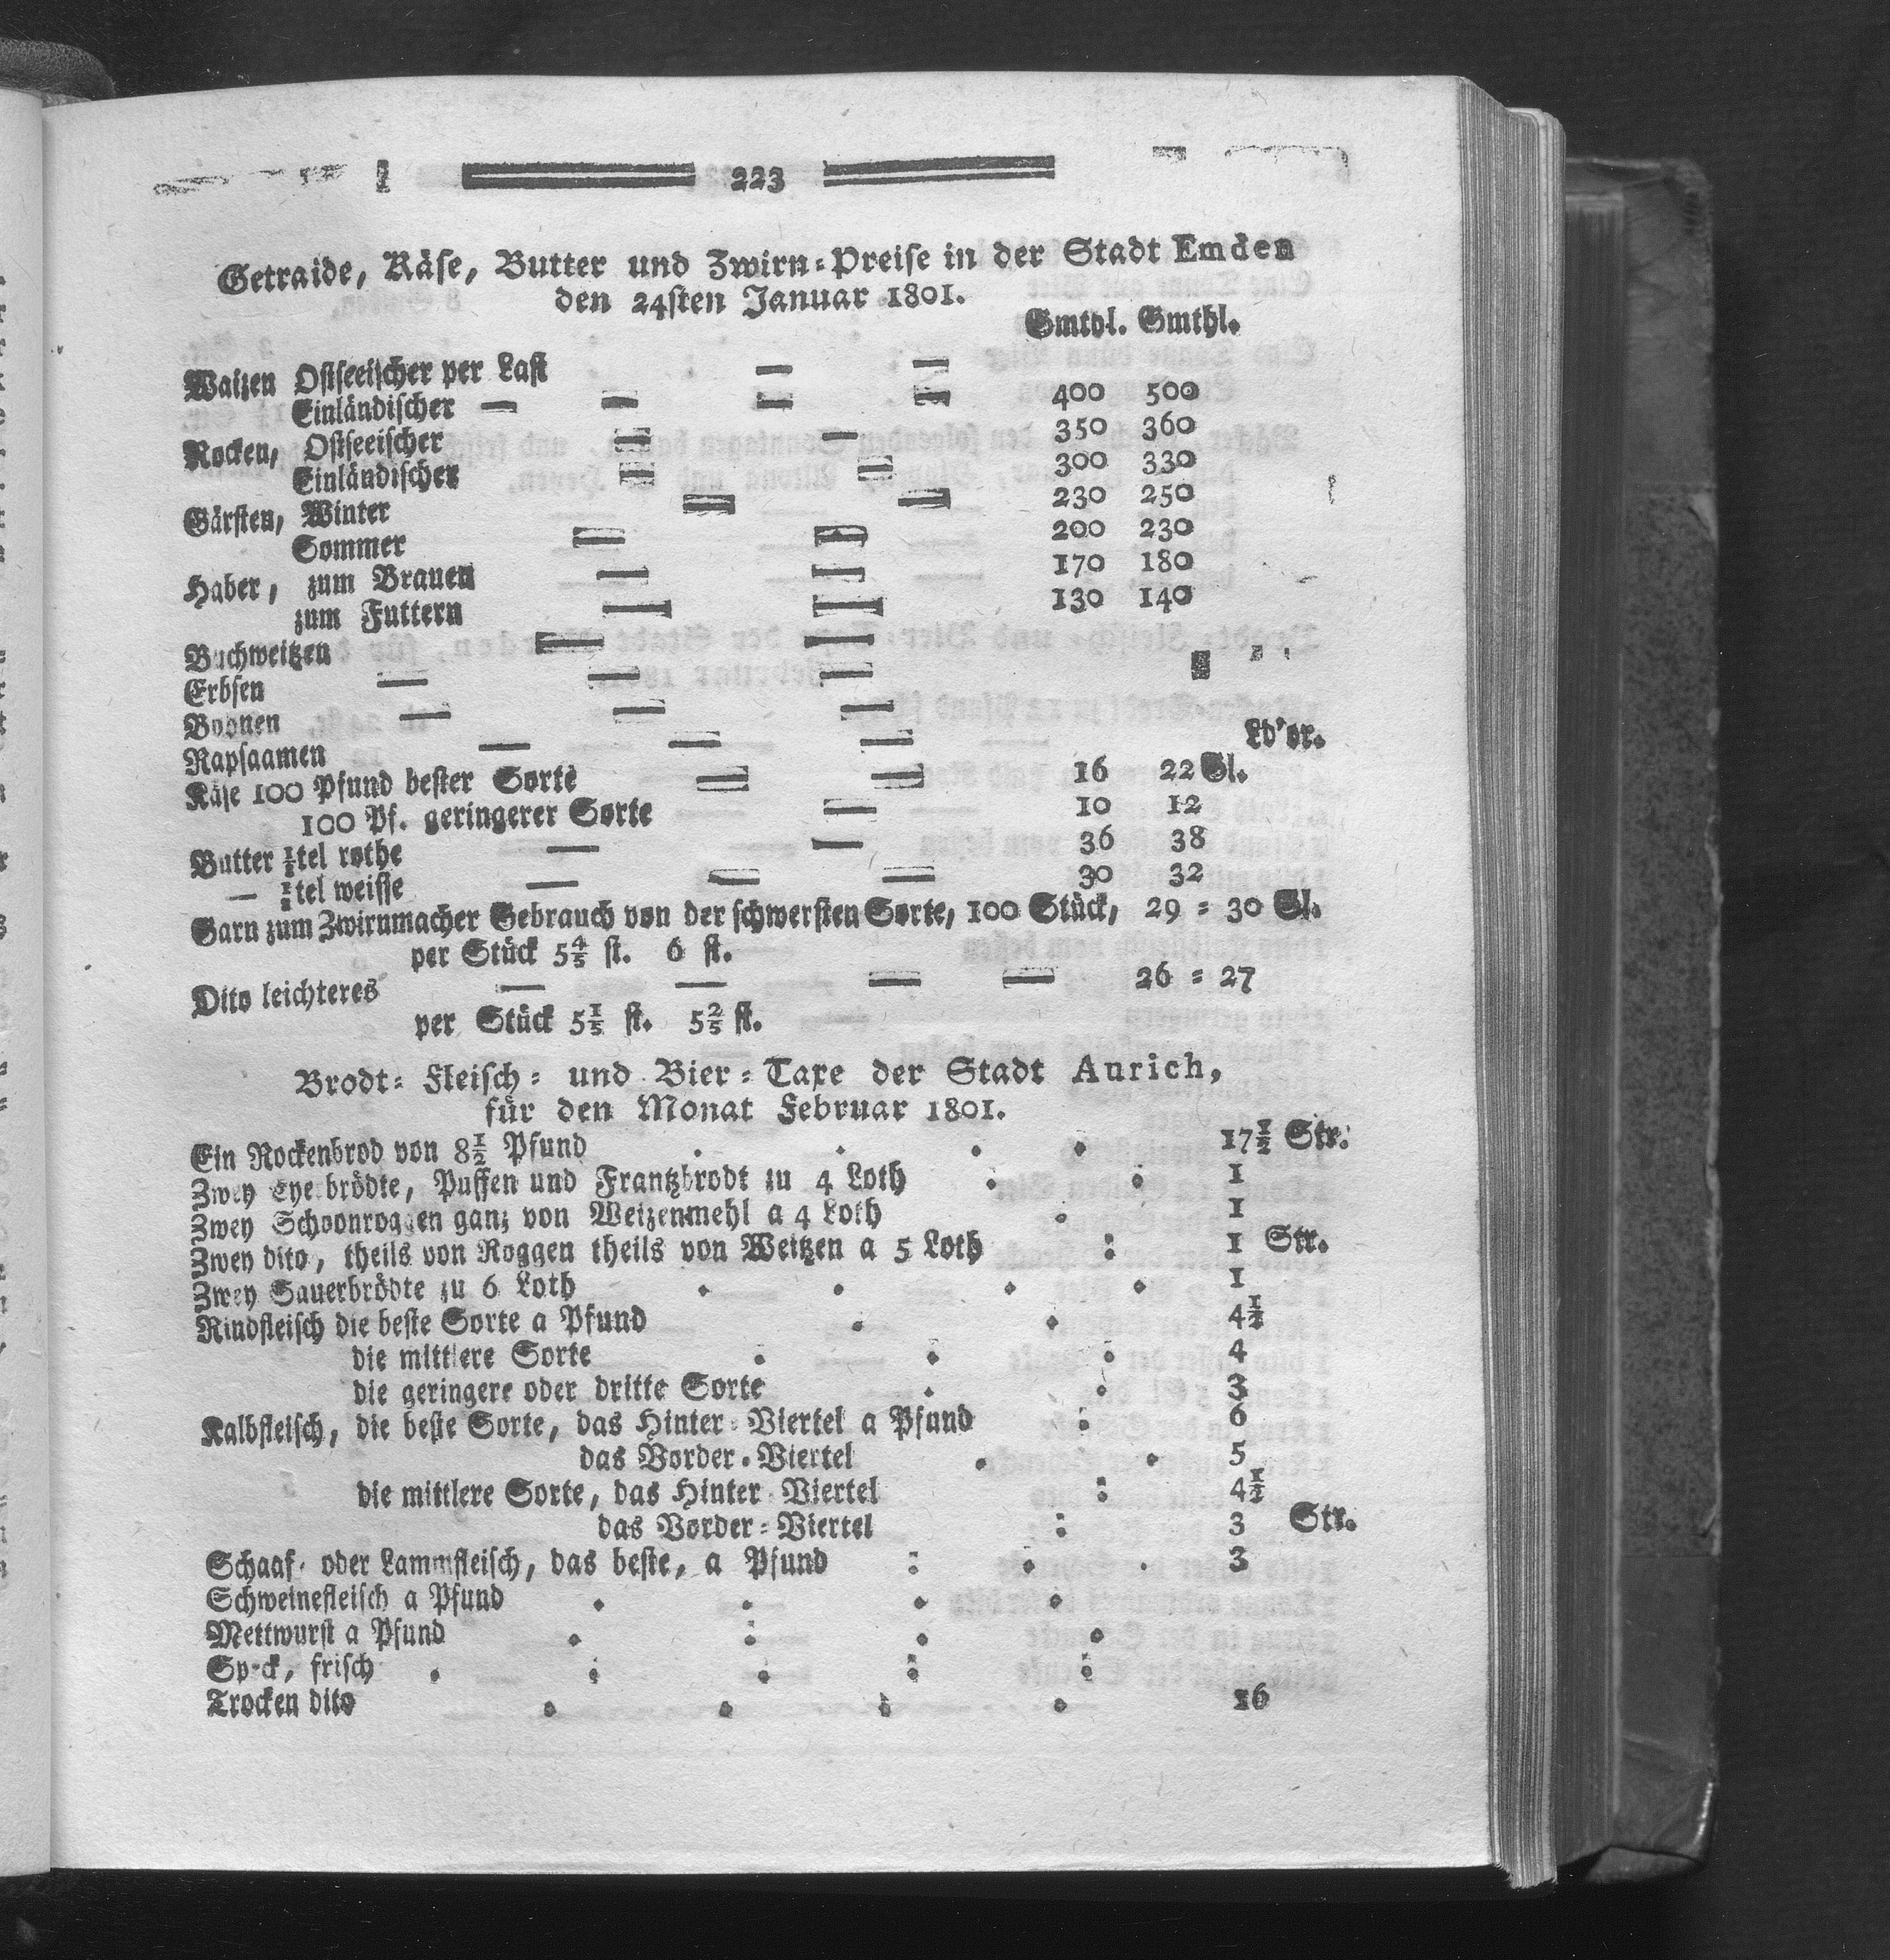 223
Getraide, Käse, Butter und Zwirn-Preise in der Stadt Emden
den 24sten Januar 1801.
Gmthl. Gmthl.
Waizen Ostseeischer per Last — —
Einländischer — — — — 400 500
Rocken, Ostseeischer — — 350 360
Einländischer — — 300 330
Gärsten, Winter — — 230 250
Sommer — — 200 230
Haber, zum Brauen — — 170 180
zum Futtern — — 130 140
Buchweitzen — —
Erbsen — — —
Boonen — — —
Rapsaamen — — — Ld'or.
Käse 100 Pfund bester Sorte — — 16 22 Gl.
100 Pf. geringerer Sorte — 10 12
Butter ½tel rothe — — 36 38
— ½tel weisse — — — 30 32
Garn zum Zwirnmacher Gebrauch von der schwersten Sorte, 100 Stück, 29 = 30 Gl.
per Stück 5⅘ st. 6 st.
Dito leichteres — — — — 26 = 27
per Stück 5⅕ st. 5⅖ st.
Brodt- Fleisch- und Bier-Taxe der Stadt Aurich,
für den Monat Februar 1801.
Ein Rockenbrod von 8½ Pfund 17½ Str.
Zwey Eyerbrödte, Puffen und Frantzbrodt zu 4 Loth 1
Zwey Schoonroggen ganz von Weizenmehl a 4 Loth 1
Zwey dito, theils von Roggen theils von Weitzen a 5 Loth 1 Str.
Zwey Sauerbrödte zu 6 Loth 1
Rindfleisch die beste Sorte a Pfund 4½
die mittlere Sorte 4
die geringere oder dritte Sorte 3
Kalbfleisch, die beste Sorte, das Hinter-Viertel a Pfund 6
das Vorder-Viertel 5
die mittlere Sorte, das Hinter-Viertel 4½
das Vorder-Viertel 3 Str.
Schaaf- oder Lammfleisch, das beste, a Pfund 3
Schweinefleisch a Pfund
Mettwurst a Pfund
Speck, frisch
Trocken dito 16